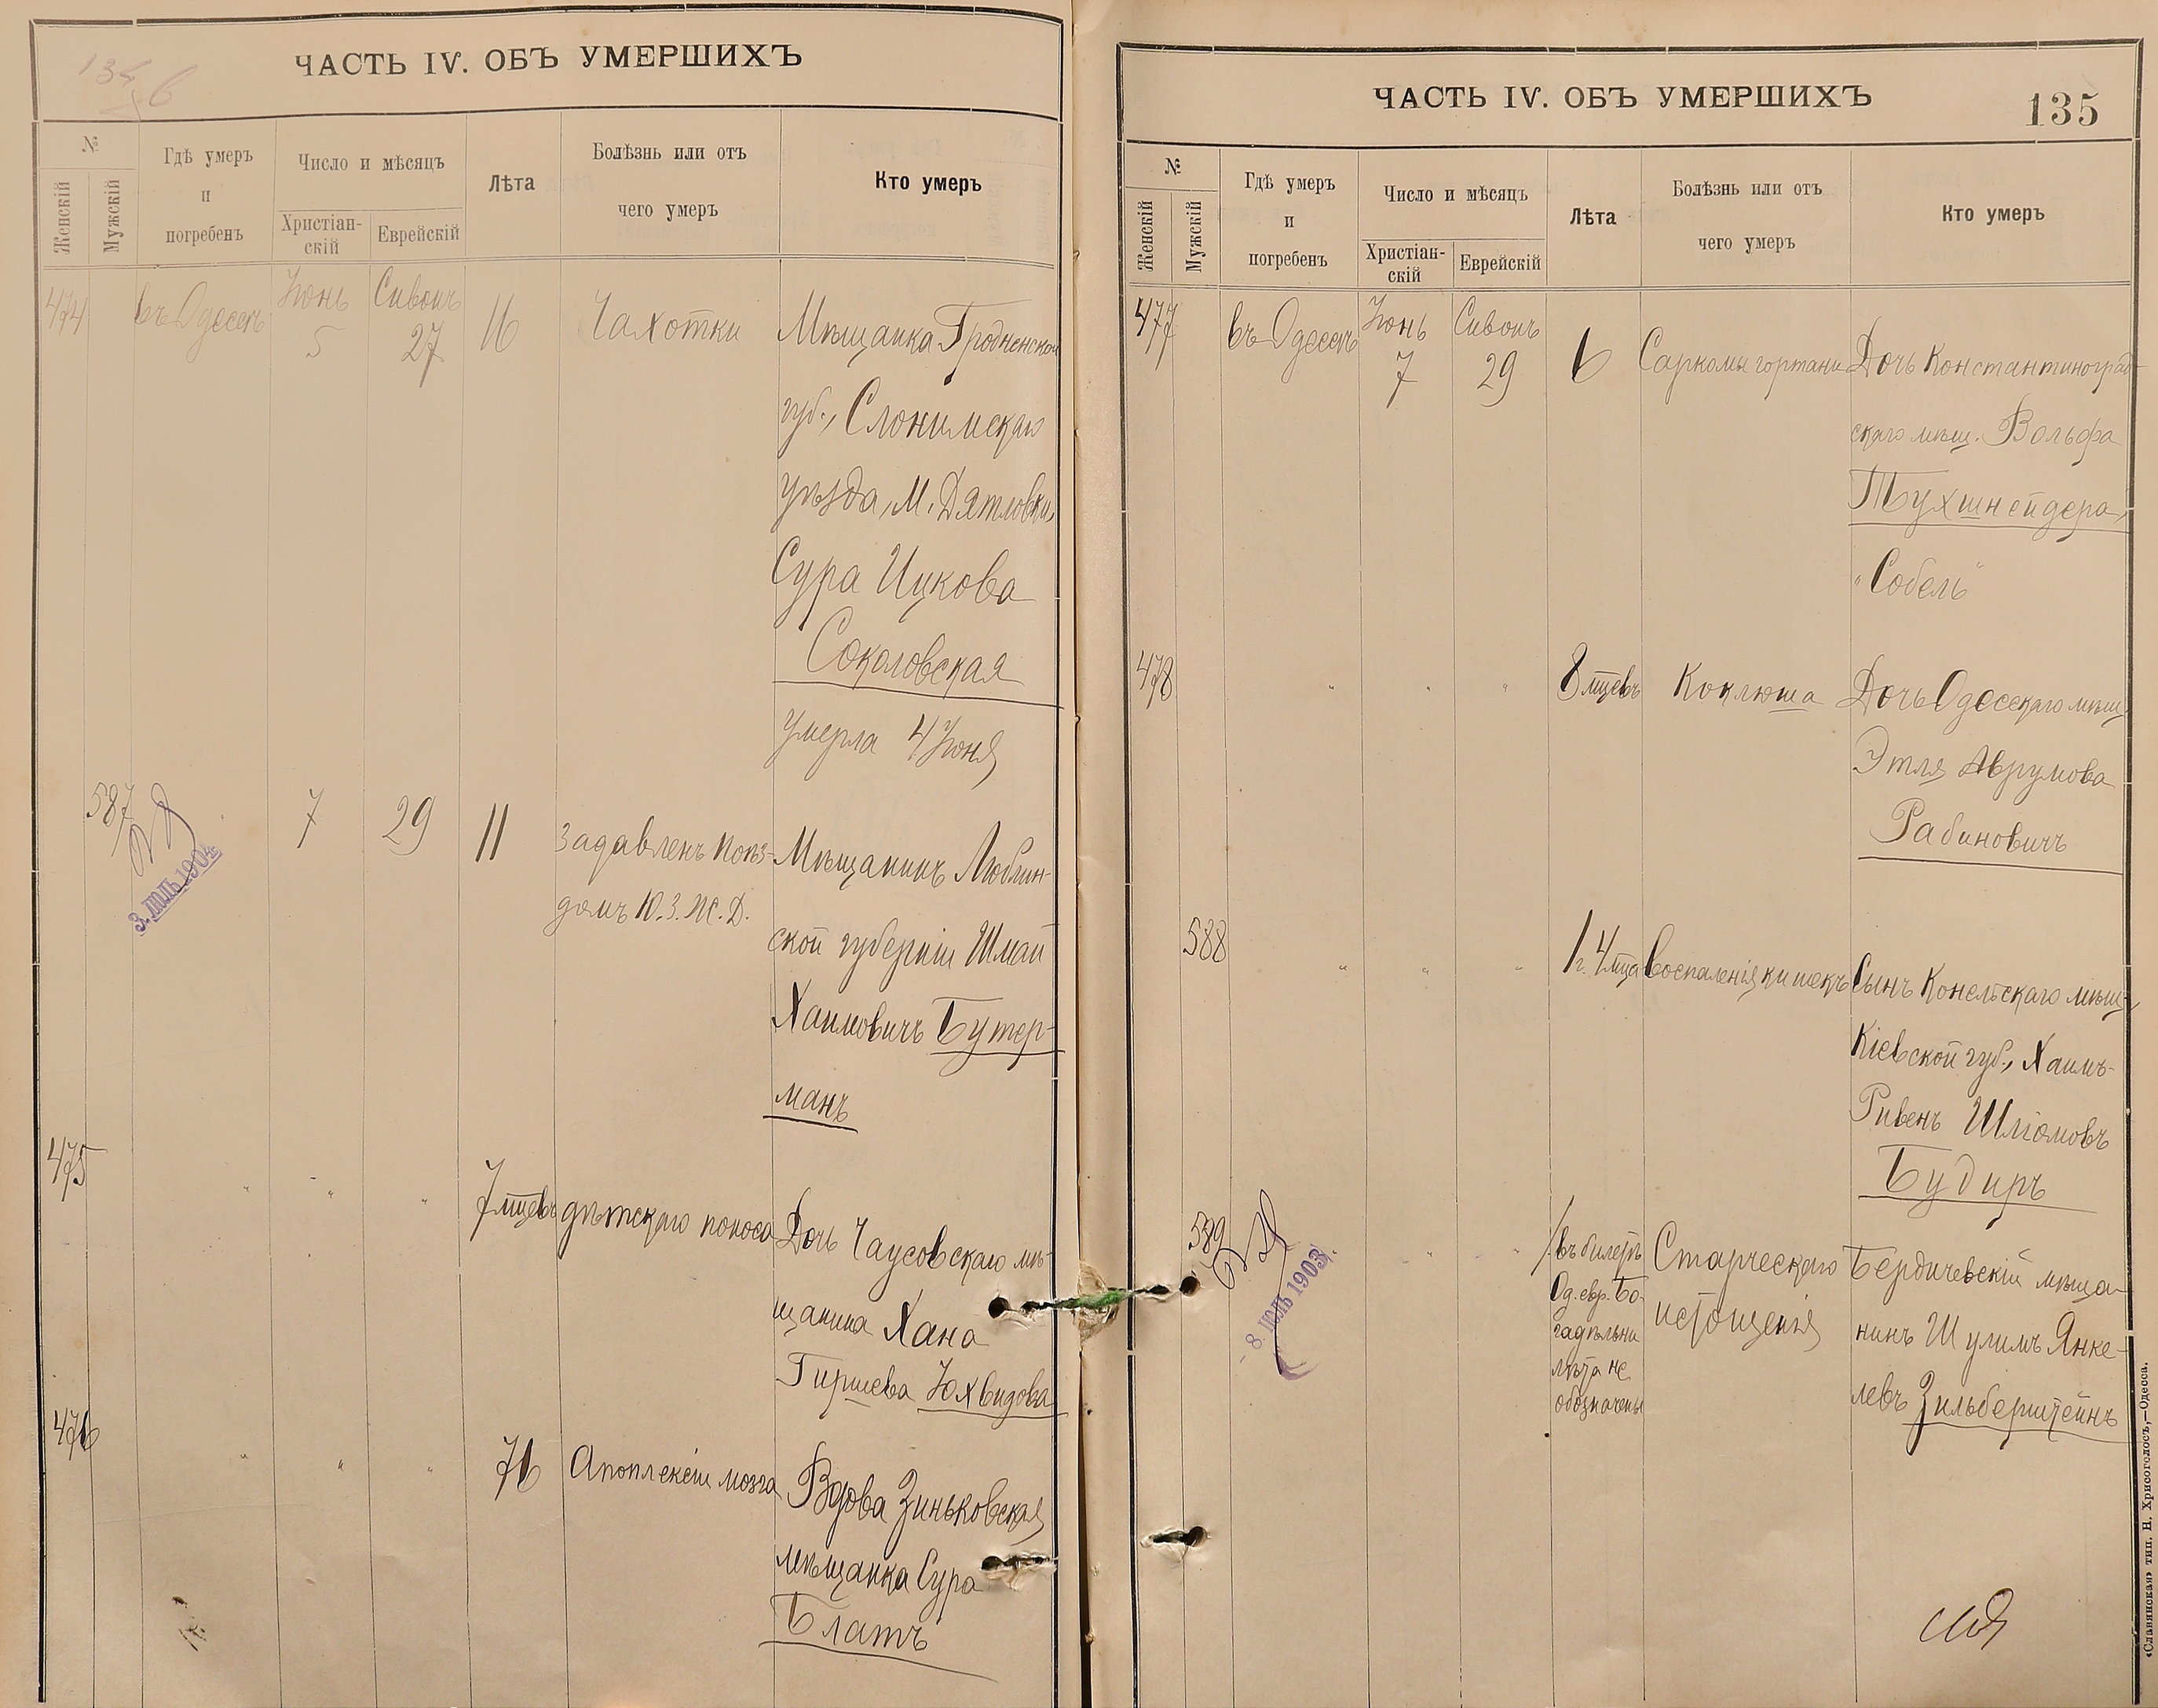 ЧАСТЬ IV. ОБЪ УМЕРШИХЪ
№
Женскій
Мужскій
Гдѣ умеръ
и
погребенъ
Число и мѣсяцъ
Христіан-
скій
Еврейскій
Лѣта
Болѣзнь или отъ
чего умеръ
Кто умеръ
474
въ Одессѣ
Іюнь
5
Сивонъ
27
16
Чахотки
Мѣщанка Гродненской
губ., Слонимскаго
уѣзда, М. Дятловки,
Сура Ицкова
Соколовская
умерла 4 Іюня
587
3. ІЮЛЬ 1904
7
29
11
Задавленъ поѣз-
домъ Ю.З.Ж.Д.
Мѣщанинъ Люблин-
ской губерніи Шмай
Хаимовичъ Бутер-
манъ
475
"
"
"
7 мцевъ
дѣтскаго поноса
Дочь Чаусовскаго мѣ-
щанина Хана
Гиршева Юхвидова
476
"
"
"
76
Апоплексіи мозга
Вдова Зиньковская
мѣщанка Сура
Блатъ
ЧАСТЬ IV. ОБЪ УМЕРШИХЪ
135
№
Женскій
Мужскій
Гдѣ умеръ
и
погребенъ
Число и мѣсяцъ
Христіан-
скій
Еврейскій
Лѣта
Болѣзнь или отъ
чего умеръ
Кто умеръ
477
въ Одессѣ
Іюнь
7
Сивонъ
29
6
Саркомы гортани
Дочь Константиноград-
скаго мѣщ. Вольфа
Тухшнейдера,
"Собель"
478
"
"
"
8 мцевъ
Коклюша
Дочь Одесскаго мѣщ.
Этля Аврумова
Рабиновичъ
588
"
"
"
1 г. 4 мца
Воспаленія кишекъ
Сынъ Конельскаго мѣщ.,
Кіевской губ., Хаимъ-
Рувенъ Шліомовъ
Будиръ
589
8. ІЮЛЬ 1903
"
"
"
/въ билетѣ
Од. евр. Бо-
гадѣльни
лѣта не
обозначены
Старческаго
истощенія
Бердичевскій мѣща-
нинъ Шулимъ Янке-
левъ Зильберштейнъ
«Славянская» тип. Н. Хрисогелосъ,—Одесса.